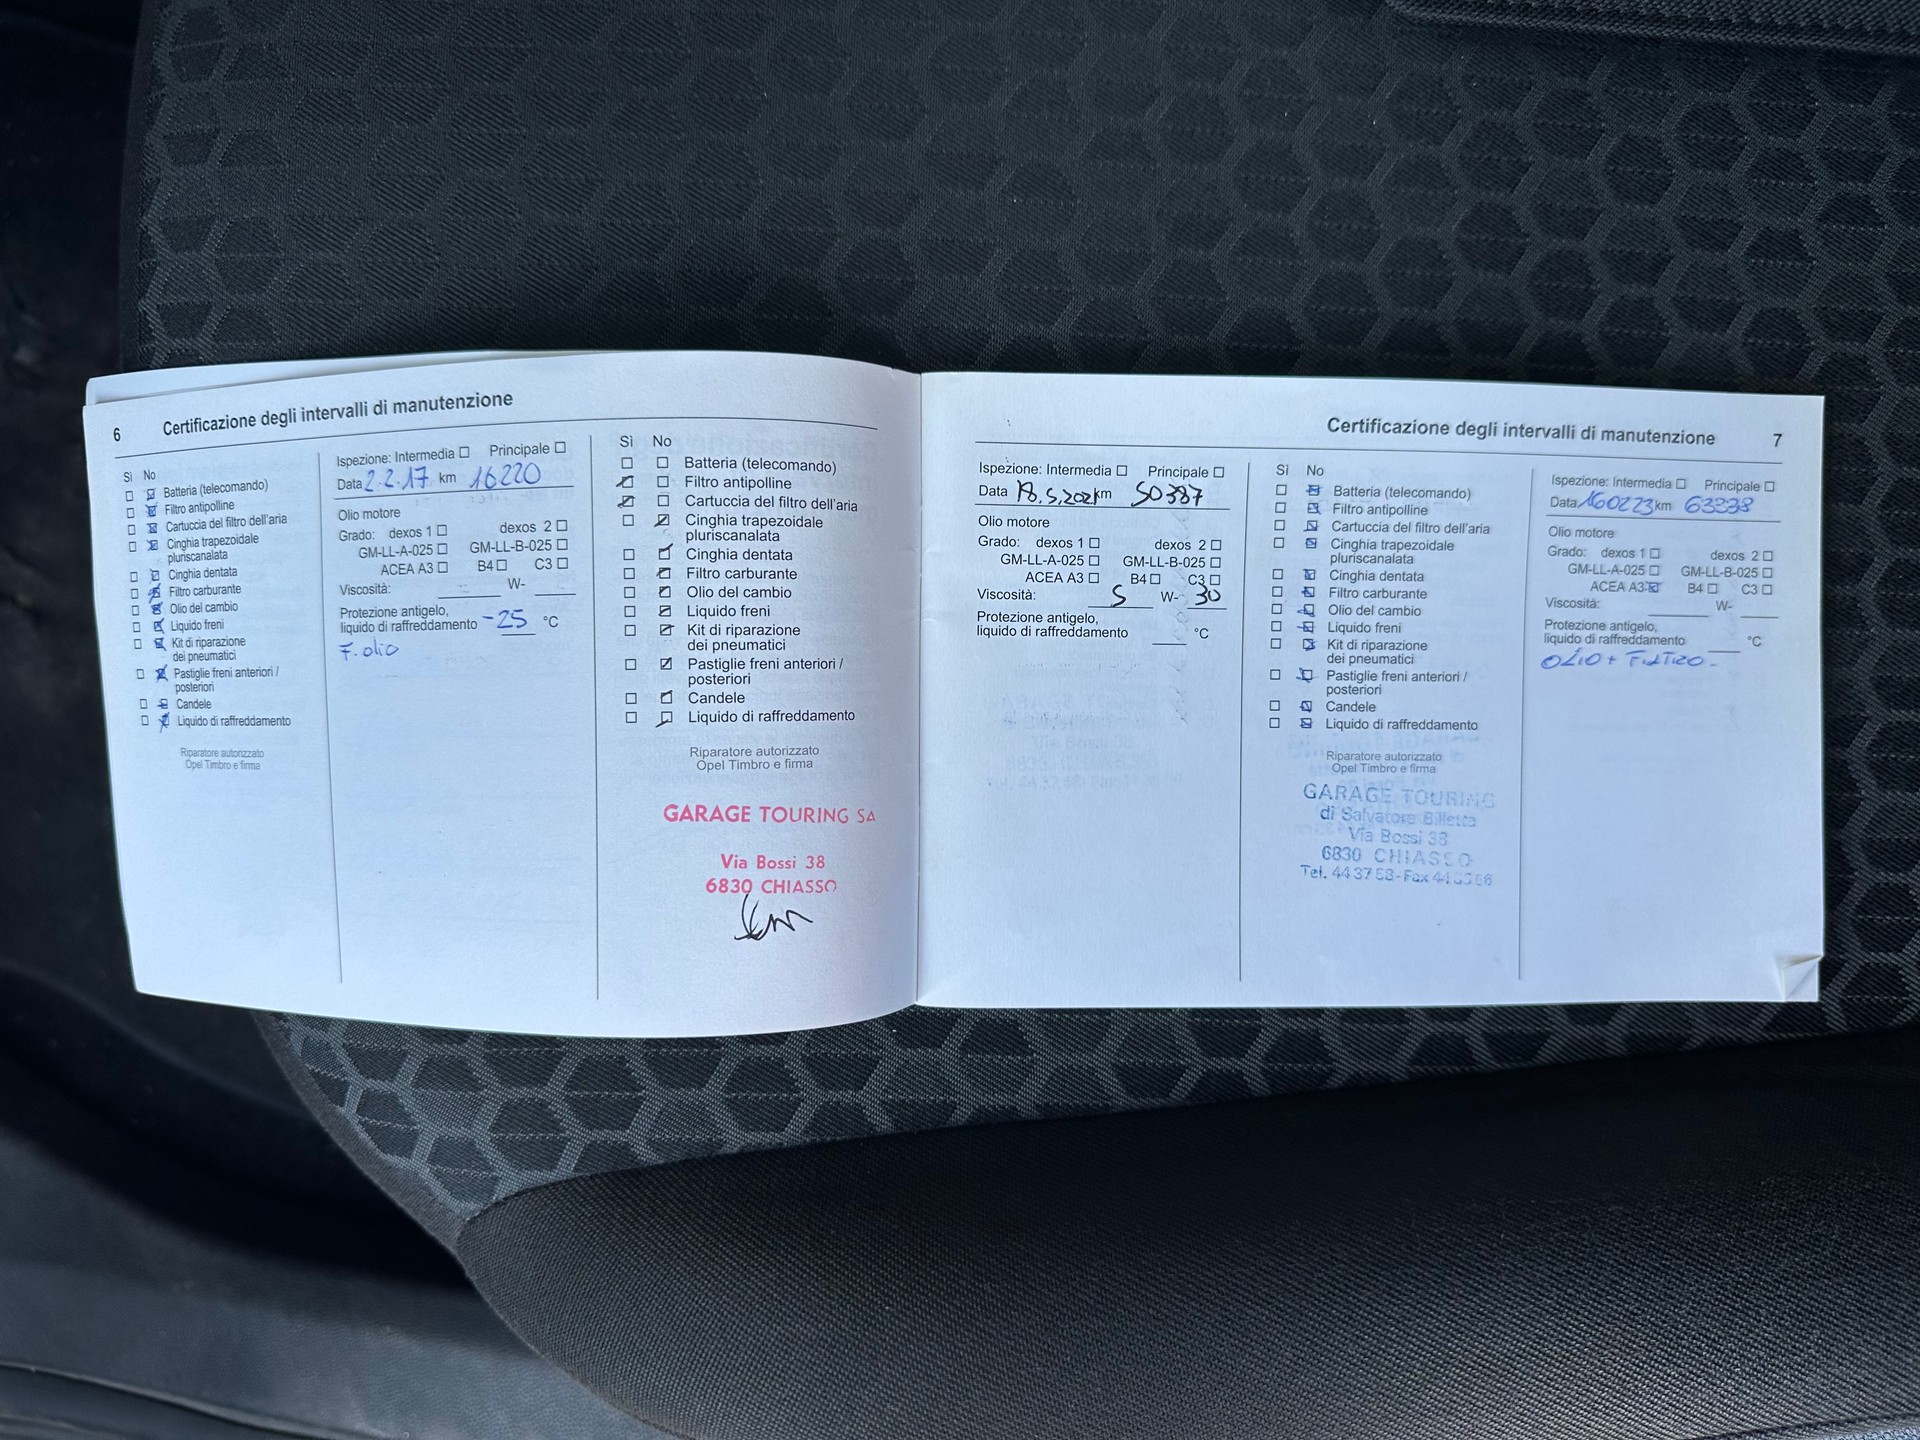 6 Certificazione degli intervalli di manutenzione
Sì No
Batteria (telecomando)
Filtro antipolline
Cartuccia del filtro dell'aria
Cinghia trapezoidale
pluriscanalata
Cinghia dentata
Filtro carburante
Olio del cambio
Liquido freni
Kit di riparazione
dei pneumatici
Pastiglie freni anteriori /
posteriori
Candele
Liquido di raffreddamento
Riparatore autorizzato
Opel Timbro e firma
Ispezione: Intermedia Principale
Data 2.2.17 km 16220
Olio motore
Grado: dexos 1 dexos 2
GM-LL-A-025 GM-LL-B-025
ACEA A3 B4 C3
Viscosità: W-
Protezione antigelo,
liquido di raffreddamento -25 °C
F. olio
Sì No
Batteria (telecomando)
Filtro antipolline
Cartuccia del filtro dell'aria
Cinghia trapezoidale
pluriscanalata
Cinghia dentata
Filtro carburante
Olio del cambio
Liquido freni
Kit di riparazione
dei pneumatici
Pastiglie freni anteriori /
posteriori
Candele
Liquido di raffreddamento
Riparatore autorizzato
Opel Timbro e firma
GARAGE TOURING SA
Via Bossi 38
6830 CHIASSO
Certificazione degli intervalli di manutenzione 7
Ispezione: Intermedia Principale
Data 18.5.2021 km 50387
Olio motore
Grado: dexos 1 dexos 2
GM-LL-A-025 GM-LL-B-025
ACEA A3 B4 C3
Viscosità: 5 W- 30
Protezione antigelo,
liquido di raffreddamento °C
Sì No
Batteria (telecomando)
Filtro antipolline
Cartuccia del filtro dell'aria
Cinghia trapezoidale
pluriscanalata
Cinghia dentata
Filtro carburante
Olio del cambio
Liquido freni
Kit di riparazione
dei pneumatici
Pastiglie freni anteriori /
posteriori
Candele
Liquido di raffreddamento
Riparatore autorizzato
Opel Timbro e firma
GARAGE TOURING
di Salvatore Billetta
Via Bossi 38
6830 CHIASSO
Tel. 44 37 58 - Fax
Ispezione: Intermedia Principale
Data 160223 km 63338
Olio motore
Grado: dexos 1 dexos 2
GM-LL-A-025 GM-LL-B-025
ACEA A3 B4 C3
Viscosità: W-
Protezione antigelo,
liquido di raffreddamento °C
OLIO + FILTRO -